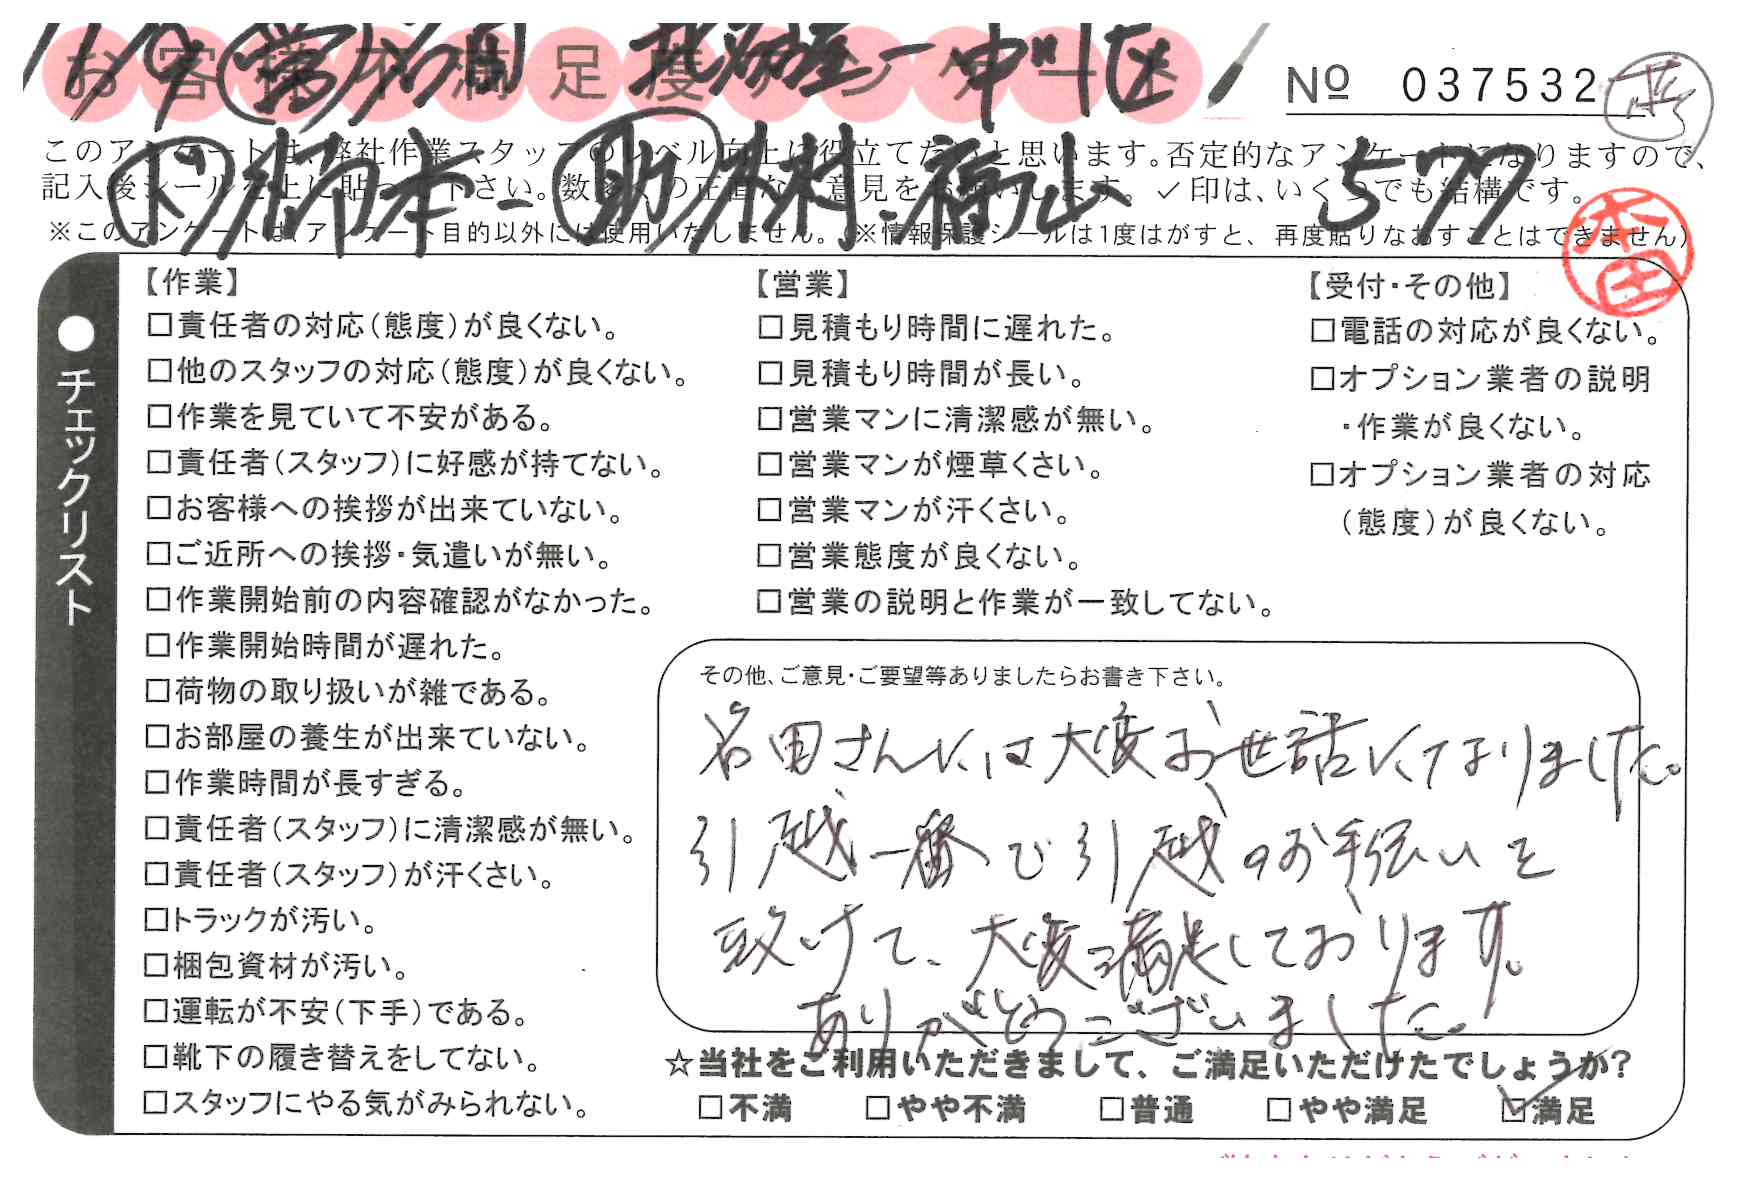 お客様不満足度アンケート
11/9 営 北名古屋ー中川区
№ 037532
このアンケートは、弊社作業スタッフのレベル向上に役立てたいと思います。否定的なアンケートになりますので、
記入後シールを上に貼って下さい。数多くの正直なご意見をお願いします。✓印は、いくつでも結構です。
※このアンケートは、アンケート目的以外には使用いたしません。(※情報保護シールは1度はがすと、再度貼りなおすことはできません)
577
本田
●チェックリスト
【作業】
□責任者の対応(態度)が良くない。
□他のスタッフの対応(態度)が良くない。
□作業を見ていて不安がある。
□責任者(スタッフ)に好感が持てない。
□お客様への挨拶が出来ていない。
□ご近所への挨拶・気遣いが無い。
□作業開始前の内容確認がなかった。
□作業開始時間が遅れた。
□荷物の取り扱いが雑である。
□お部屋の養生が出来ていない。
□作業時間が長すぎる。
□責任者(スタッフ)に清潔感が無い。
□責任者(スタッフ)が汗くさい。
□トラックが汚い。
□梱包資材が汚い。
□運転が不安(下手)である。
□靴下の履き替えをしてない。
□スタッフにやる気がみられない。
【営業】
□見積もり時間に遅れた。
□見積もり時間が長い。
□営業マンに清潔感が無い。
□営業マンが煙草くさい。
□営業マンが汗くさい。
□営業態度が良くない。
□営業の説明と作業が一致してない。
【受付・その他】
□電話の対応が良くない。
□オプション業者の説明
・作業が良くない。
□オプション業者の対応
(態度)が良くない。
その他、ご意見・ご要望等ありましたらお書き下さい。
岩田さんには大変お世話になりました。
引越一番で引越のお手伝いを
頂けて、大変満足しております。
ありがとうございました。
☆当社をご利用いただきまして、ご満足いただけたでしょうか?
□不満 □やや不満 □普通 □やや満足 ☑満足